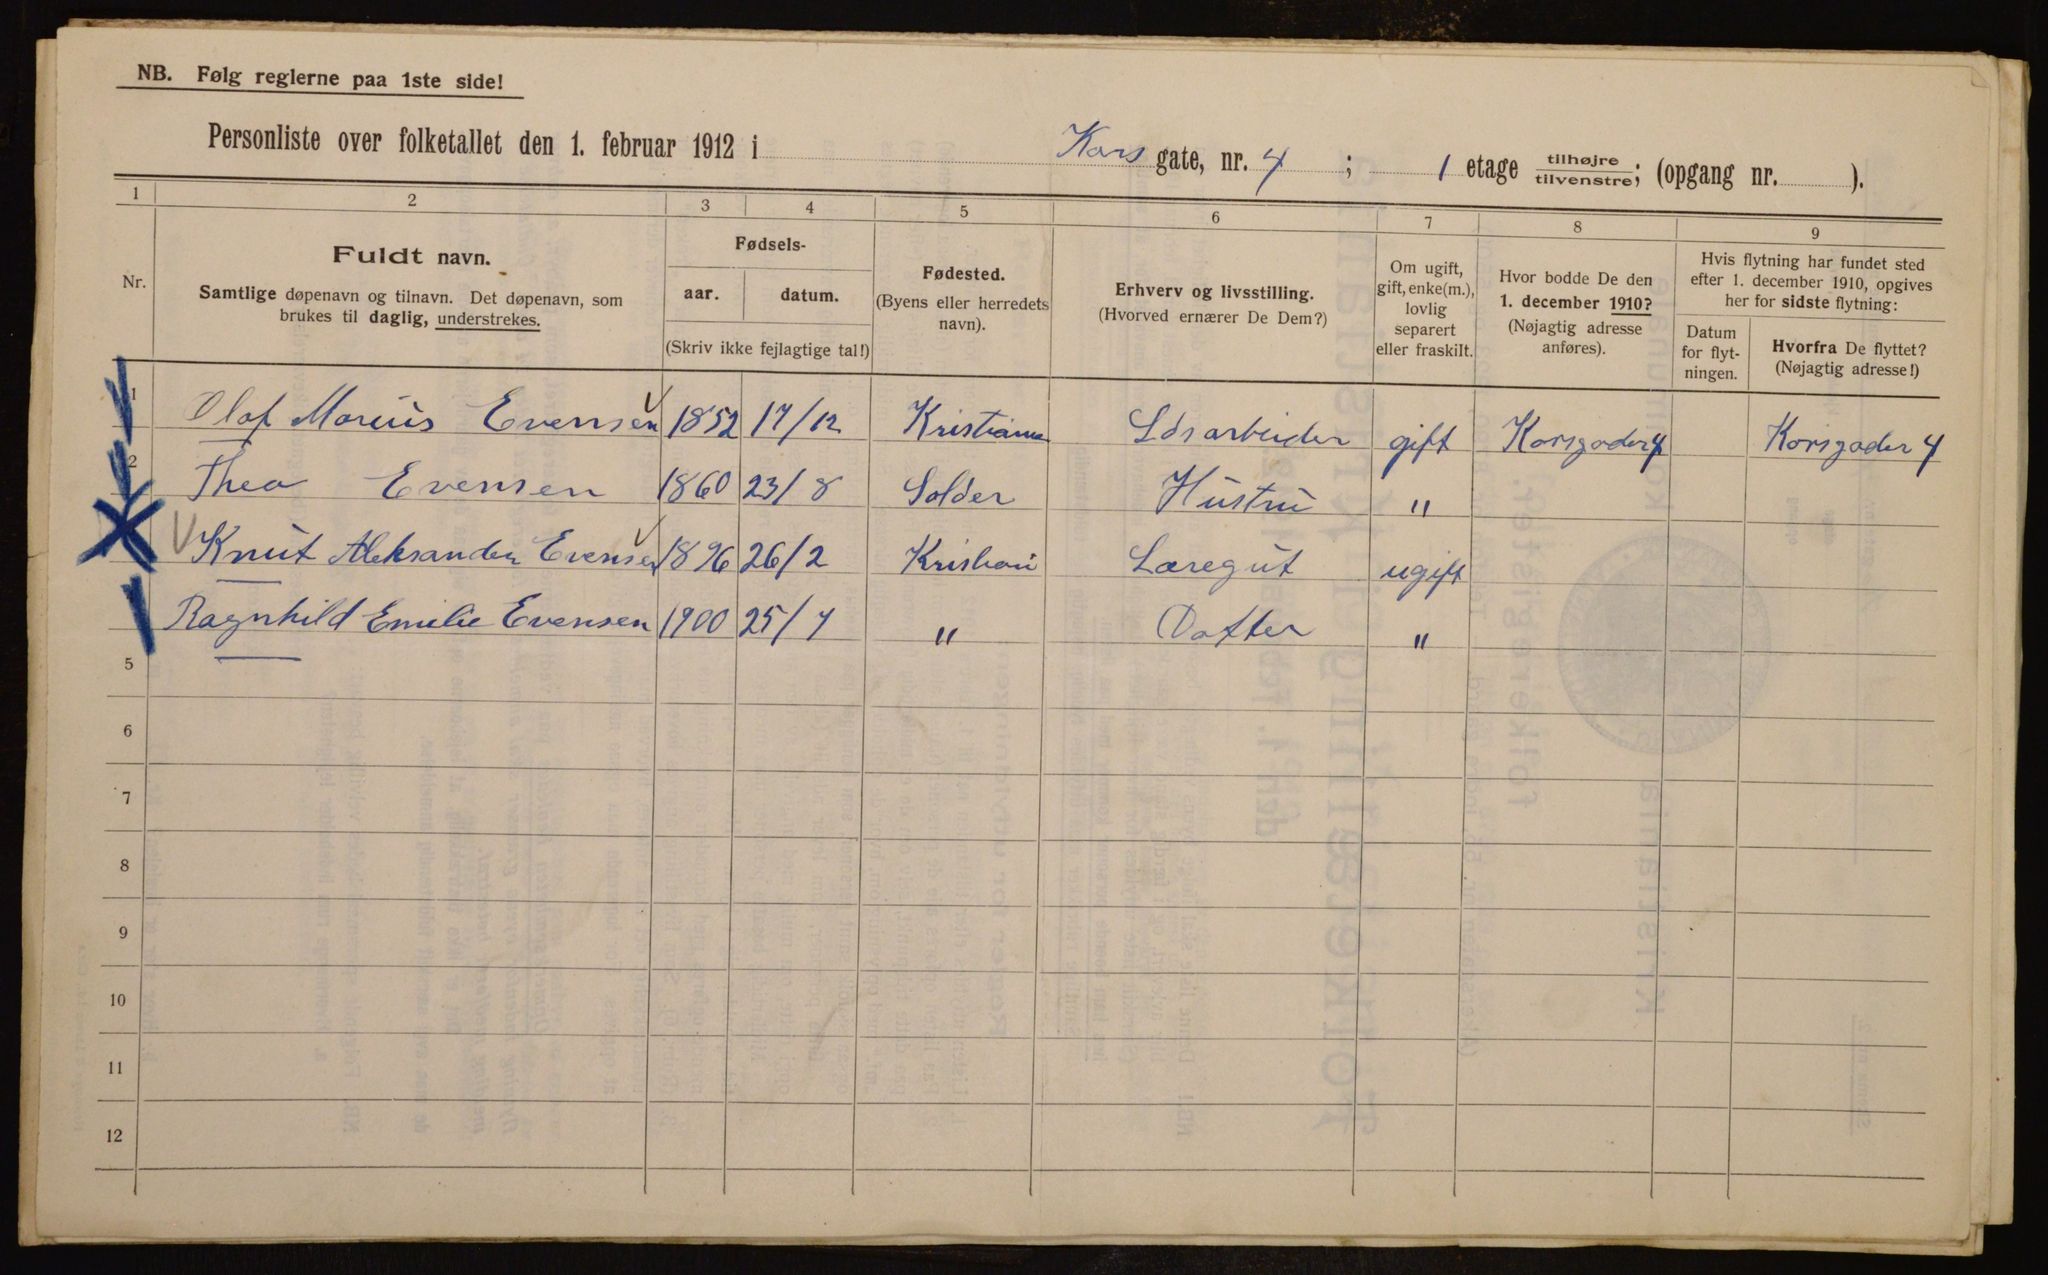 NB. Følg reglerne paa 1ste side!
Personliste over folketallet den 1. februar 1912 i Kors gate, nr. 4 ; 1 etage tilhøjre tilvenstre; (opgang nr. ).
1 2 3 4 5 6 7 8 9
Nr.
Fuldt navn.
Samtlige døpenavn og tilnavn. Det døpenavn, som
brukes til daglig, understrekes.
Fødsels-
aar. datum.
(Skriv ikke fejlagtige tal!)
Fødested.
(Byens eller herredets
navn).
Erhverv og livsstilling.
(Hvorved ernærer De Dem?)
Om ugift,
gift, enke(m.),
lovlig
separert
eller fraskilt.
Hvor bodde De den
1. december 1910?
(Nøjagtig adresse
anføres).
Hvis flytning har fundet sted
efter 1. december 1910, opgives
her for sidste flytning:
Datum
for flyt-
ningen.
Hvorfra De flyttet?
(Nøjagtig adresse!)
1 Olaf Marius Evensen 1852 17/12 Kristiania Løsarbeider gift Korsgaden 4 Korsgaden 4
2 Thea Evensen 1860 23/8 Solør Hustru "
Knut Aleksander Evensen 1896 26/2 Læregut ugift
Ragnhild Emilie Evensen 1900 25/7 " Datter "
5
6
7
8
9
10
11
12